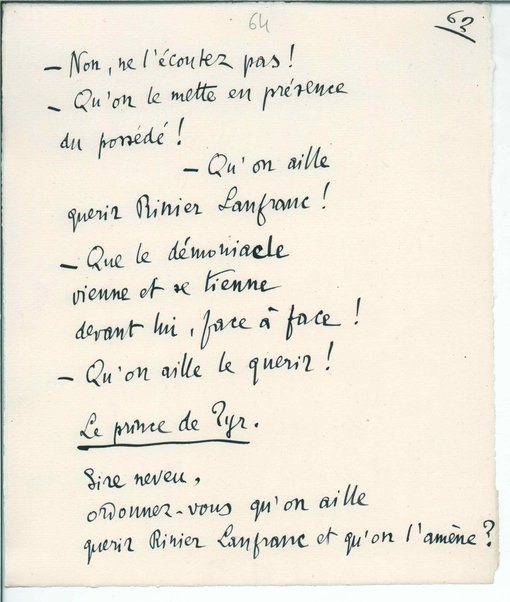 64
62
— Non, ne l'écoutez pas !
— Qu'on le mette en présence
du possédé !
— Qu'on aille
querir Rinier Lanfranc !
— Que le démoniacle
vienne et se tienne
devant lui, face à face !
— Qu'on aille le querir !
Le prince de Tyr.
Sire neveu,
ordonnez-vous qu'on aille
querir Rinier Lanfranc et qu'on l'amène ?